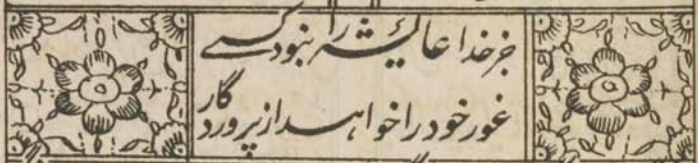 جز خدا عائشه را نبود کسے
غور خود را خواہد از پروردگار